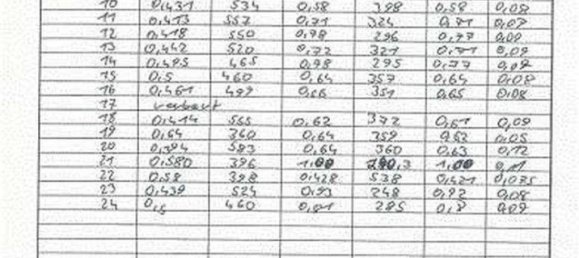 10 0,431 534 0,58 398 0,58 0,08
11 0,413 557 0,71 324 0,71 0,07
12 0,418 550 0,78 296 0,77 0,09
13 0,442 520 0,72 321 0,71 0,09
14 0,495 465 0,78 295 0,77 0,09
15 0,5 460 0,64 357 0,64 0,08
16 0,461 499 0,66 351 0,65 0,08
17 verbaut
18 0,414 555 0,62 372 0,61 0,09
19 0,64 360 0,64 359 0,62 0,05
20 0,394 583 0,64 360 0,63 0,12
21 0,580 396 1,00 1,00
22 0,58 398 0,428 538 0,421 0,075
23 0,439 524 0,93 248 0,92 0,08
24 0,5 460 0,81 285 0,8 0,09